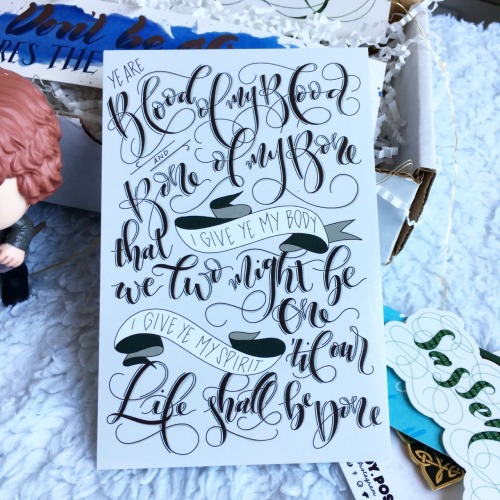 Don't be
RES THE
YE ARE
Blood of my Blood
AND
Bone of my Bone
that I GIVE YE MY BODY
we Two might be
One
I GIVE YE MY SPIRIT 'til our
Life shall be Done
Sassen